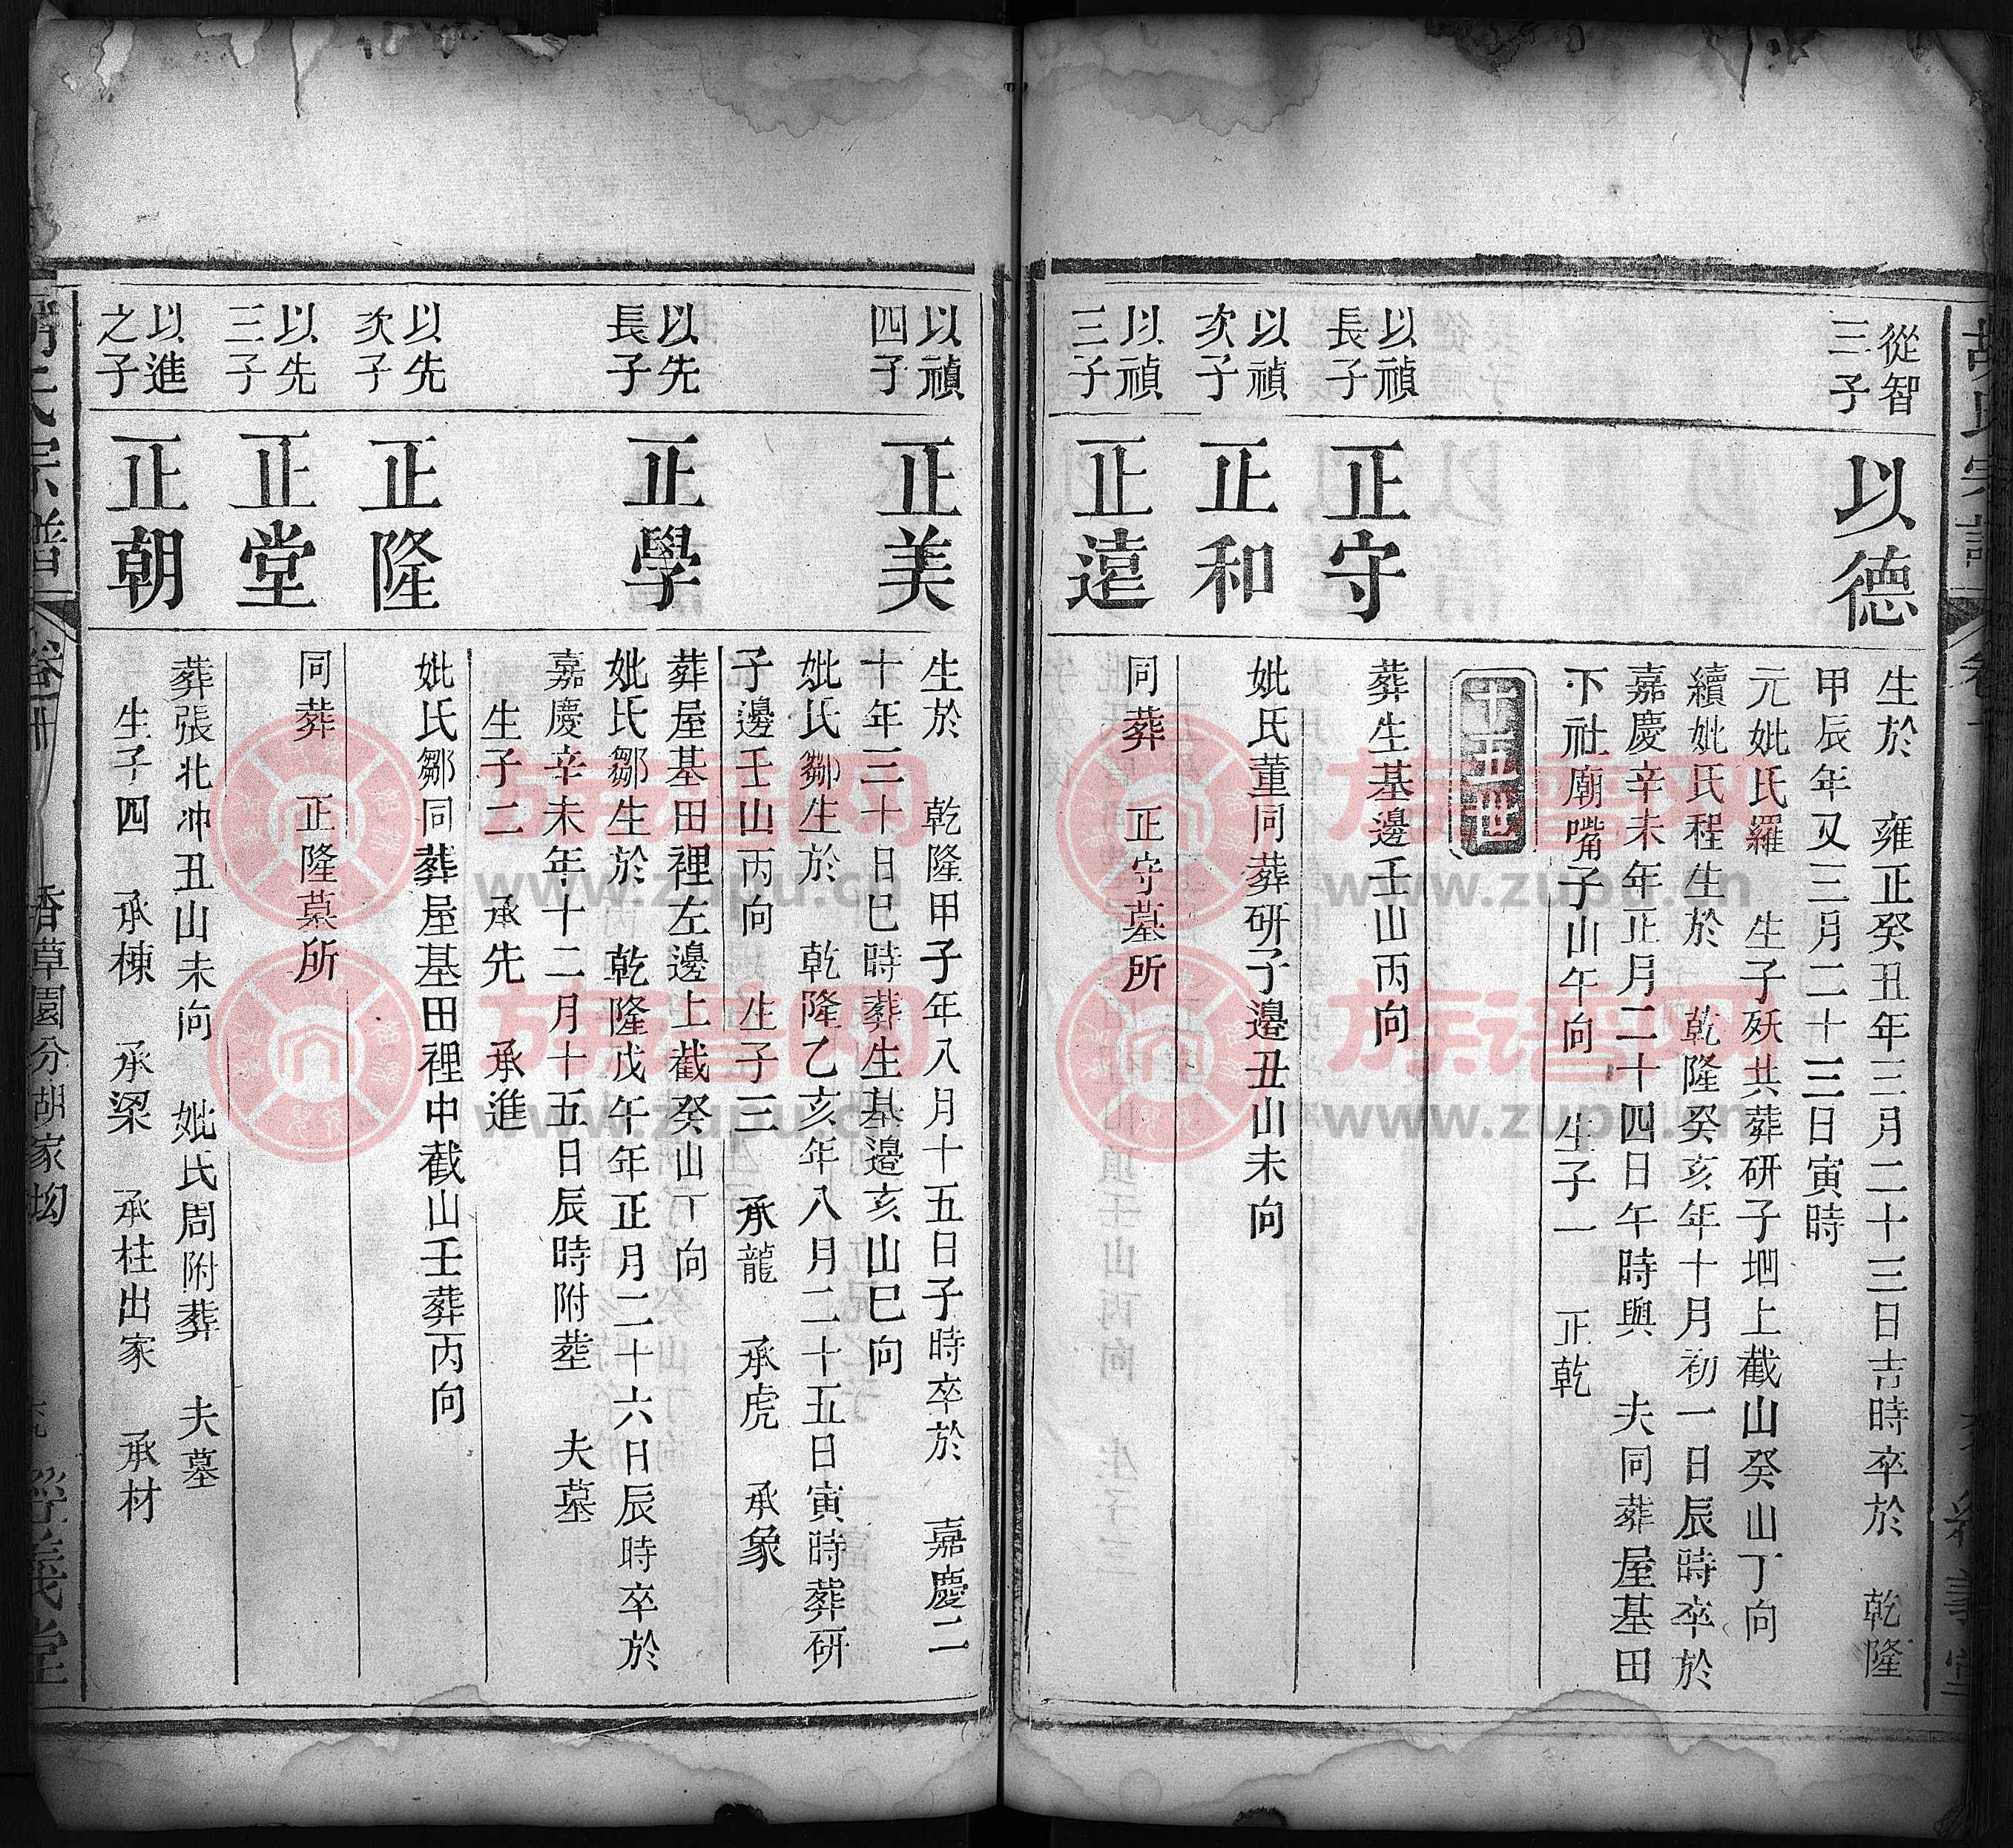 從智
三子
以德
生於 雍正癸丑年三月二十三日吉時卒於 乾隆
甲辰年又三月二十三日寅時
元妣氏羅 生子殀共葬研子堋上截山癸山丁向
續妣氏程生於 乾隆癸亥年十月初一日辰時卒於
嘉慶辛未年正月二十四日午時與 夫同葬屋基田
下社廟嘴子山午向 生子一 正乾
十五世
以禎
長子
正守
葬生基邊壬山丙向
以禎
次子
正和
妣氏董同葬研子邊丑山未向
以禎
三子
正遠
同葬 正守墓所
以禎
四子
正美
生於 乾隆甲子年八月十五日子時卒於 嘉慶二
十年三十日巳時葬生基邊亥山巳向
妣氏鄒生於 乾隆乙亥年八月二十五日寅時葬研
子邊壬山丙向 生子三 承龍 承虎 承象
以先
長子
正學
葬屋基田裡左邊上截癸山丁向
妣氏鄒生於 乾隆戊午年正月二十六日辰時卒於
嘉慶辛未年十二月十五日辰時附塟 夫墓
生子二 承先 承進
以先
次子
正隆
妣氏鄒同葬屋基田裡中截山壬葬丙向
以先
三子
正堂
同葬 正隆墓所
以進
之子
正朝
葬張北冲丑山未向 妣氏周附葬 夫墓
生子四 承棟 承梁 承柱出家 承材
胡氏宗譜 卷卌 香草園分胡家坳 經義堂
族譜网
www.zupu.cn
族譜网
www.zupu.cn
族譜网
www.zupu.cn
族譜网
www.zupu.cn